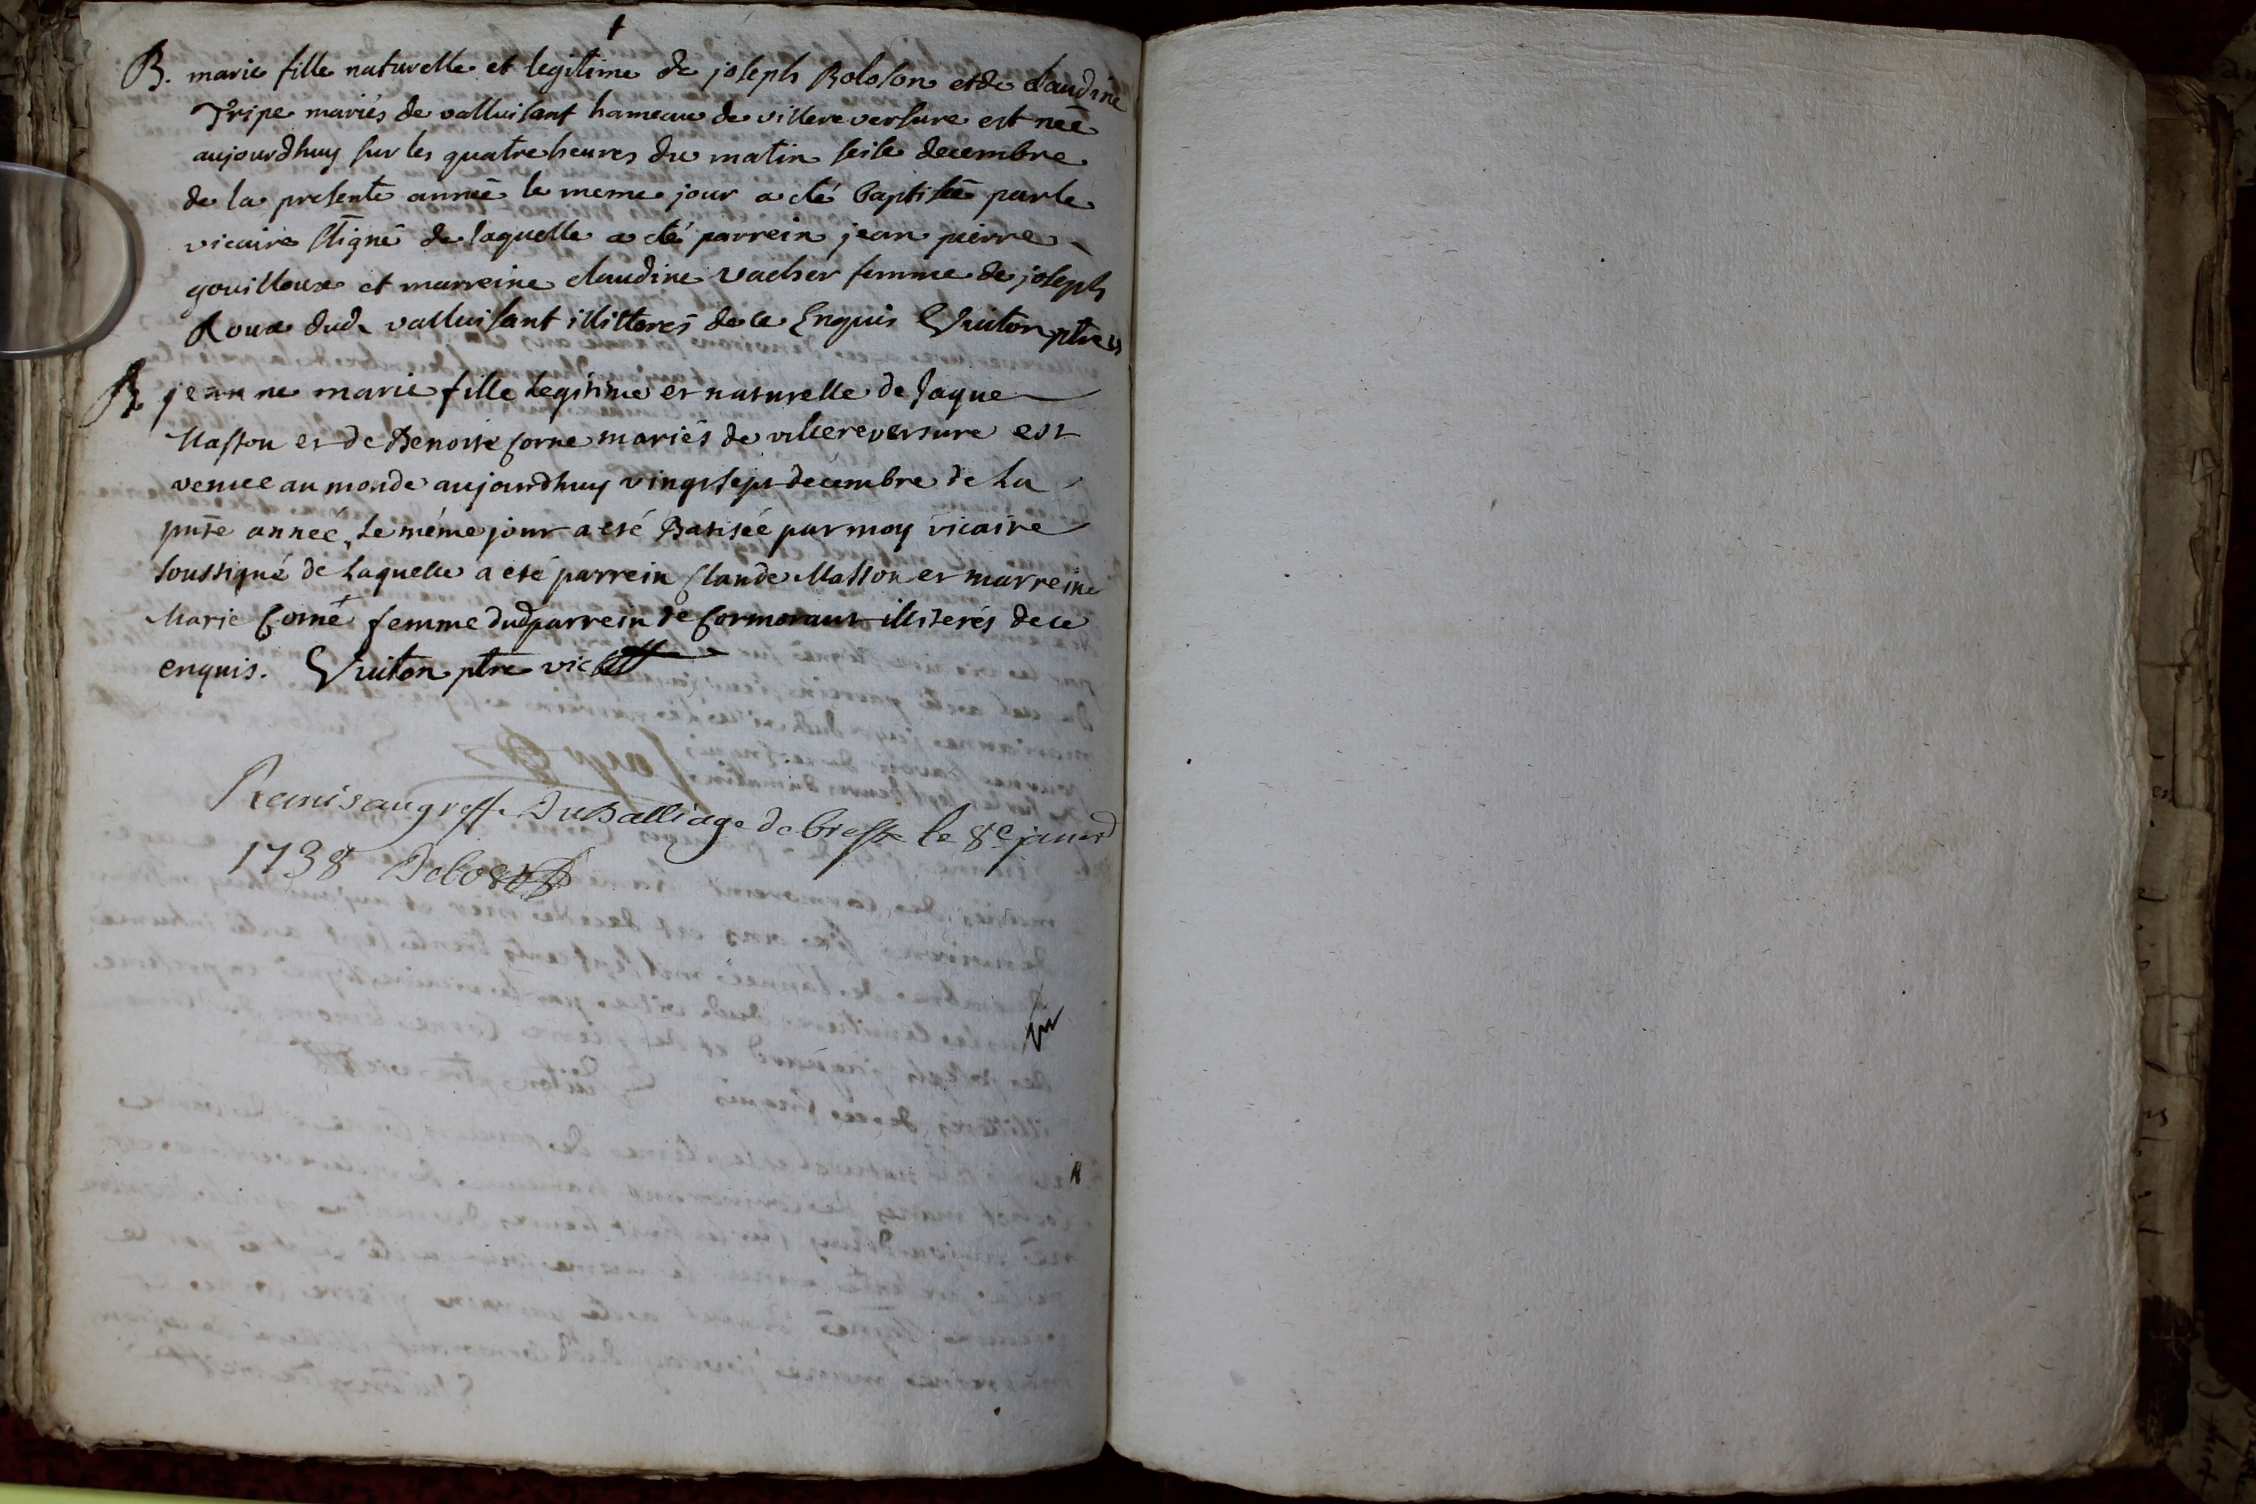 B. marie fille naturelle et legitime de joseph Roloson et de claudine
Tripe mariés de valluisant hameau de villereversure est née
aujourdhuy sur les quatre heures du matin seise decembre
de la presente année le meme jour a été baptisée par le
vicaire sśigné de laquelle a été parrein jean pierre
gouilloux et marreine claudine vacher femme de joseph
Roux dud. valluisant illitterés de ce Enquis Vuiton ptre
B jeanne marie fille legitime et naturelle de Jaque
Masson et de Benoite Corne mariés de villereversure est
venue au monde aujourdhuy vingt sept decembre de la
pnte année, le méme jour a eté Batisée par moy vicaire
soussigné de laquelle a eté parrein Claude Masson et marreine
Marie Corne femme dud parrein de Cormorant illiterés de ce
enquis. Vuiton ptre vic
Remis au greffe Du Balliage de bresse le 8e janvd
1738